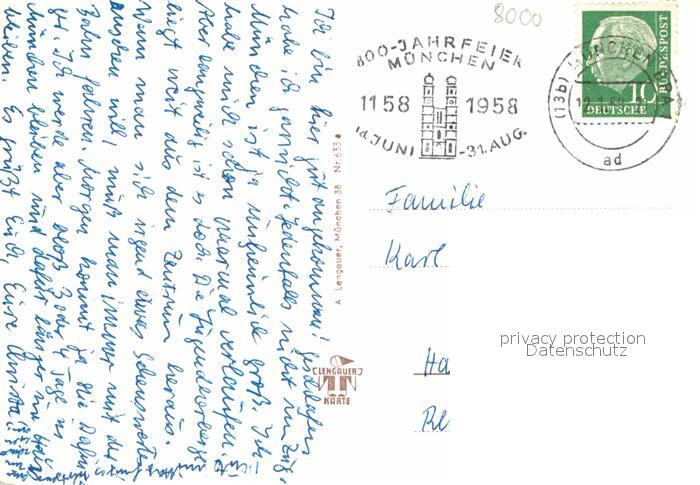 Ich bin hier gut angekommen! geschlafen
habe ich gar nicht jedenfalls nicht im Zug.
München ist ja unheimlich groß. Ich
habe mich schon mal verlaufen.
Aber langweilig ist es doch. Die Jugendherberge
liegt weit aus dem Zentrum heraus.
Wenn man sich irgend etwas Sehenswertes
ansehen will, muß man immer mit der
Bahn fahren. Morgen kommt ja die
Ich werde aber bloß 3 oder 4 Tage in
München bleiben und dafür länger in
bleiben. Es grüßt Euch, Eure Christa
8000
800-JAHRFEIER
MÜNCHEN
1158 1958
14. JUNI -31. AUG.
(13b) MÜNCHEN
ad
10
DEUTSCHE
BUNDESPOST
Familie
Karl
Ha
Re
A. Lengauer, München 38 Nr. 633a
LENGAUER
KARTE
privacy protection
Datenschutz